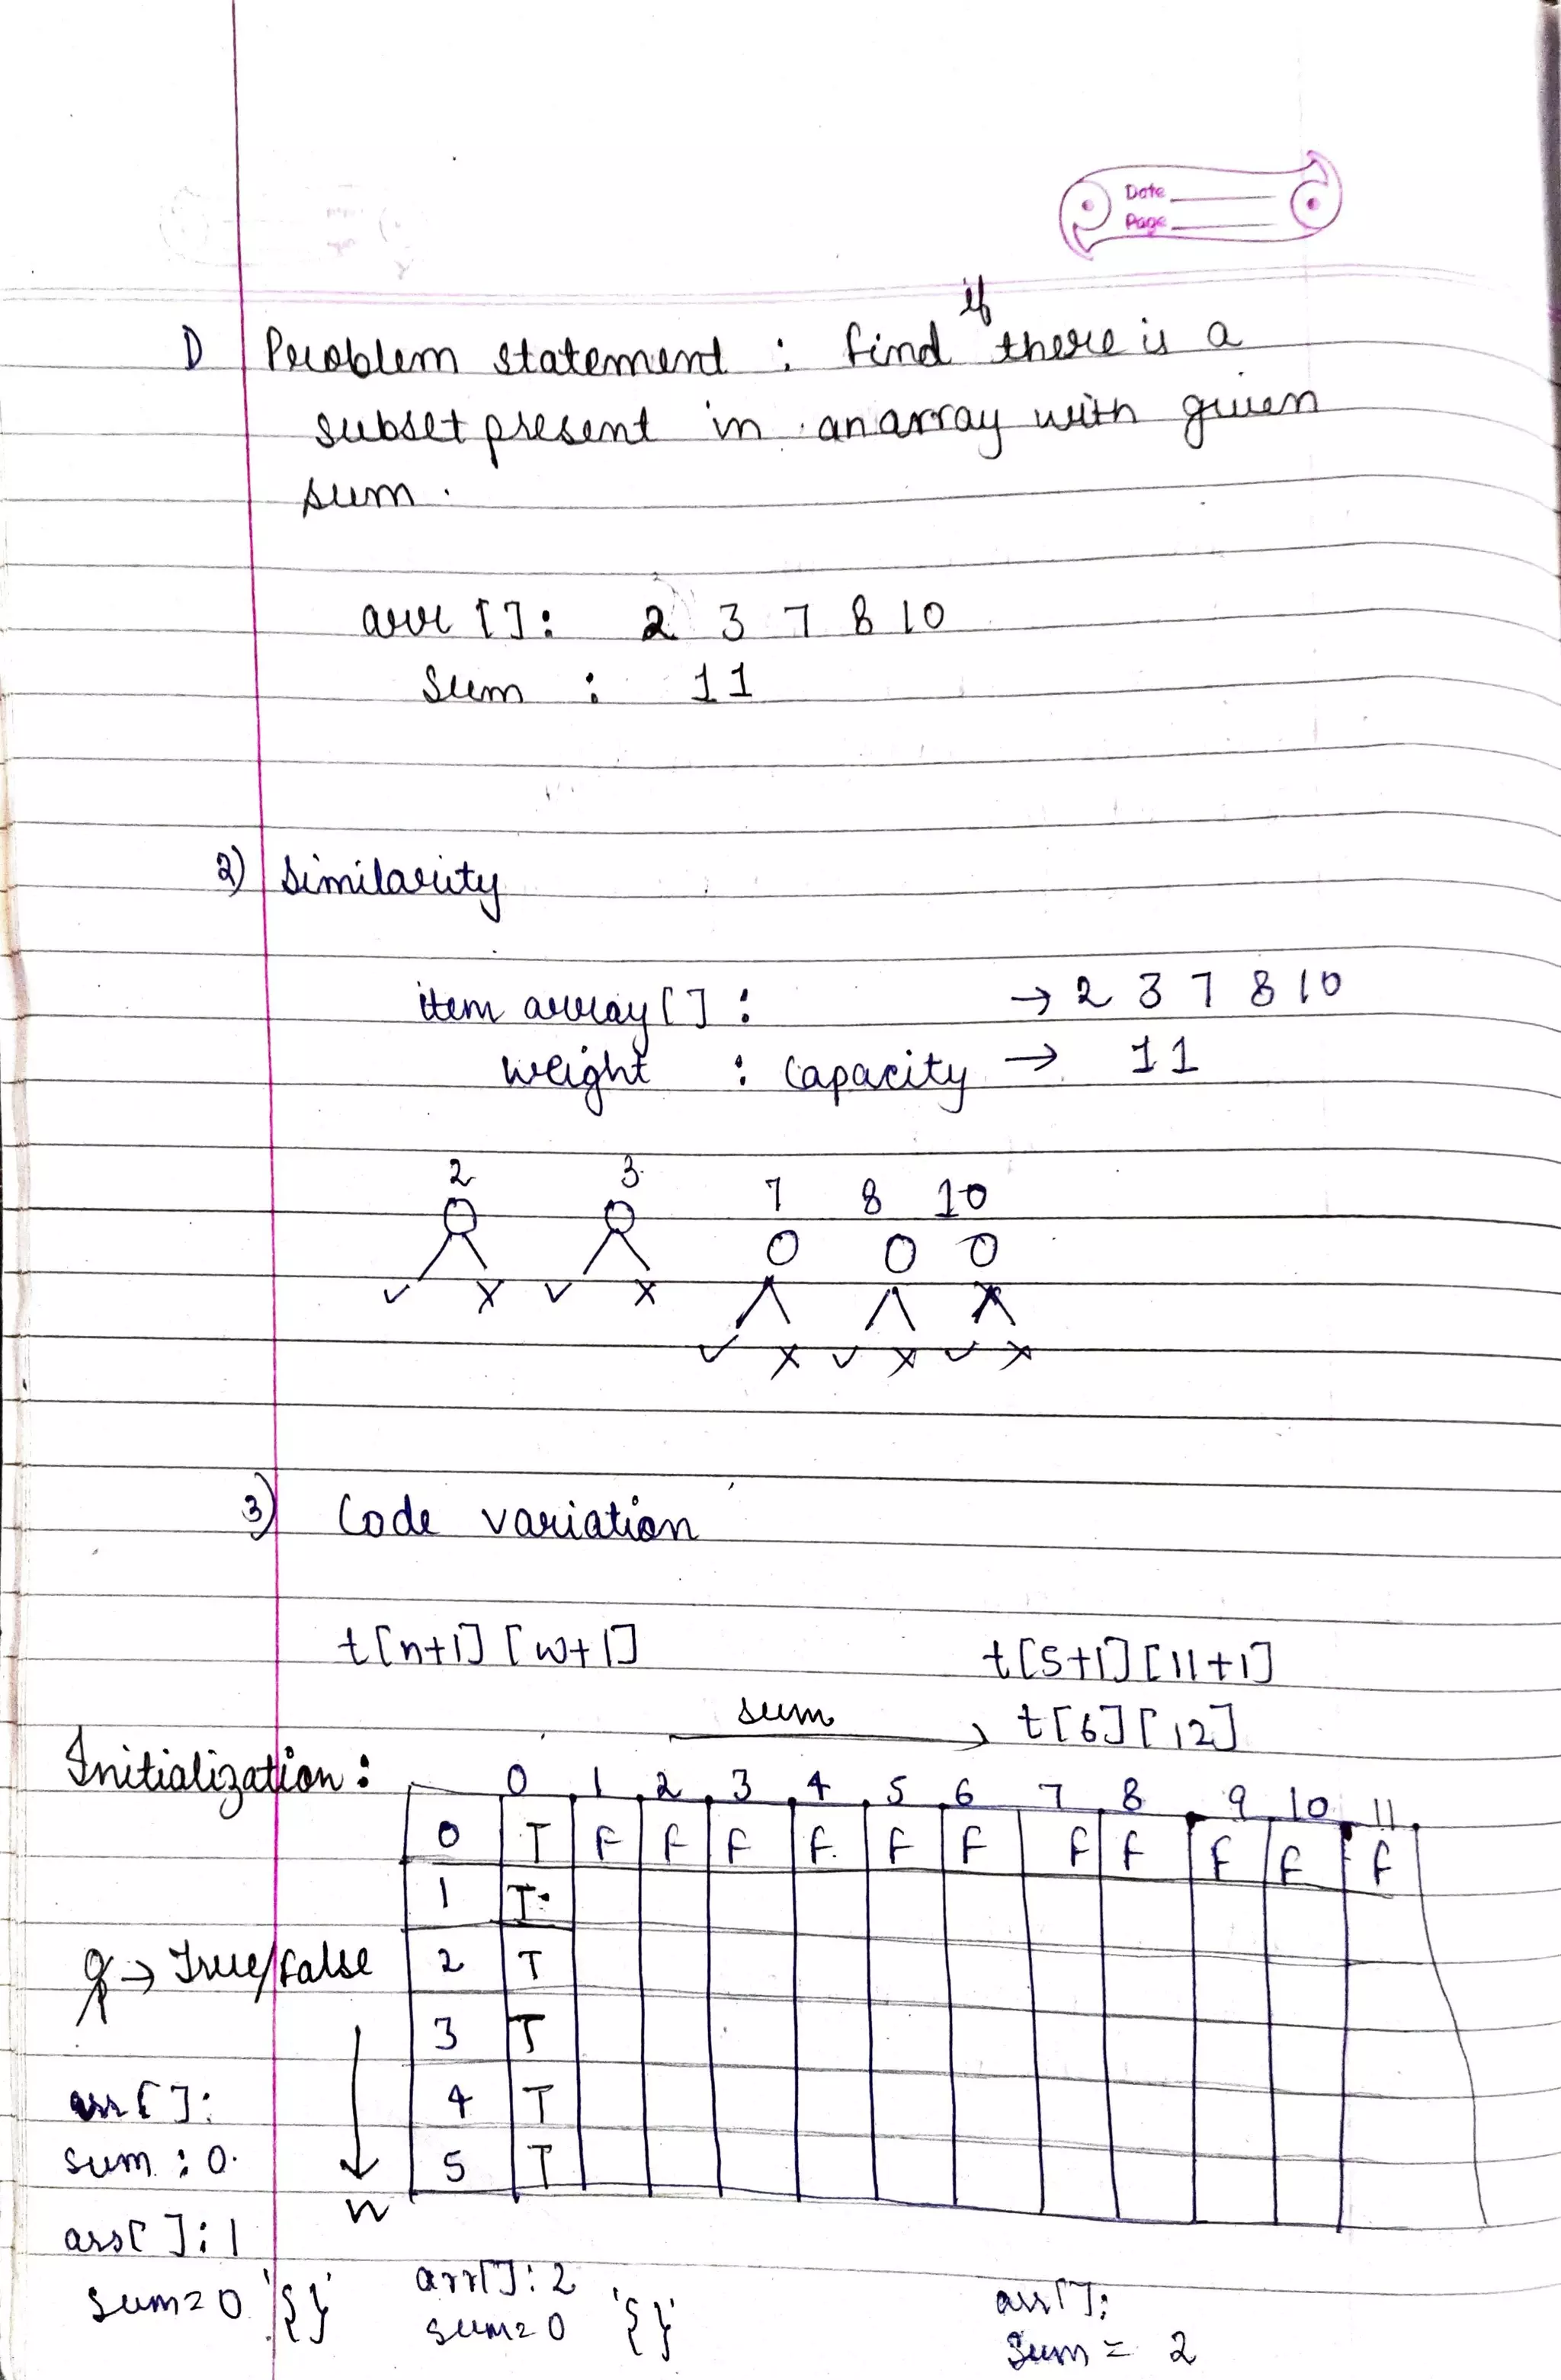 Date
Page
1) Problem statement : find if there is a
subset present in an array with given
sum.
arr []: 2 3 7 8 10
Sum : 11
2) Similarity
item array[] : → 2 3 7 8 10
weight : Capacity → 11
2 3 7 8 10
✓ x ✓ x
✓ x ✓ x ✓ x
3) Code variation
t[n+1] [w+1] t[5+1][11+1]
sum t[6][12]
Initialization :
0 1 2 3 4 5 6 7 8 9 10 11
0 T F F F F F F F F F F F
1 T
2 T
3 T
4 T
5 T
→ True/False
arr[]:
sum : 0
n
arr[]: 1
sum = 0 '{}'
arr[]: 2
sum = 0 '{}'
arr[]:
Sum = 2